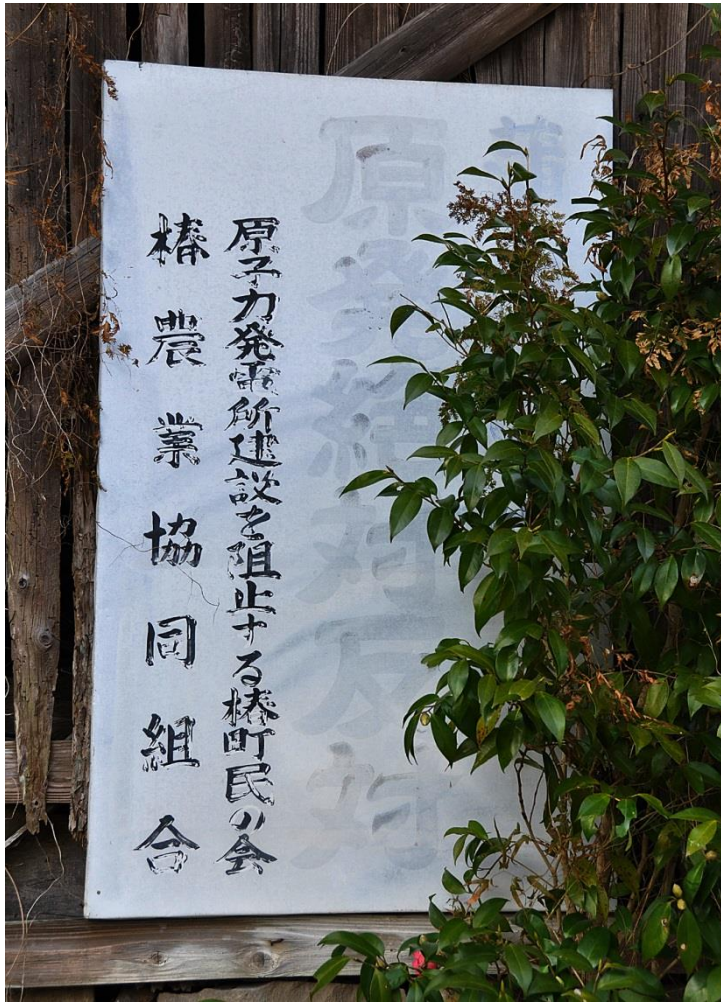 蒲
原発絶対反対
原子力発電所建設を阻止する椿町民の会
椿農業協同組合